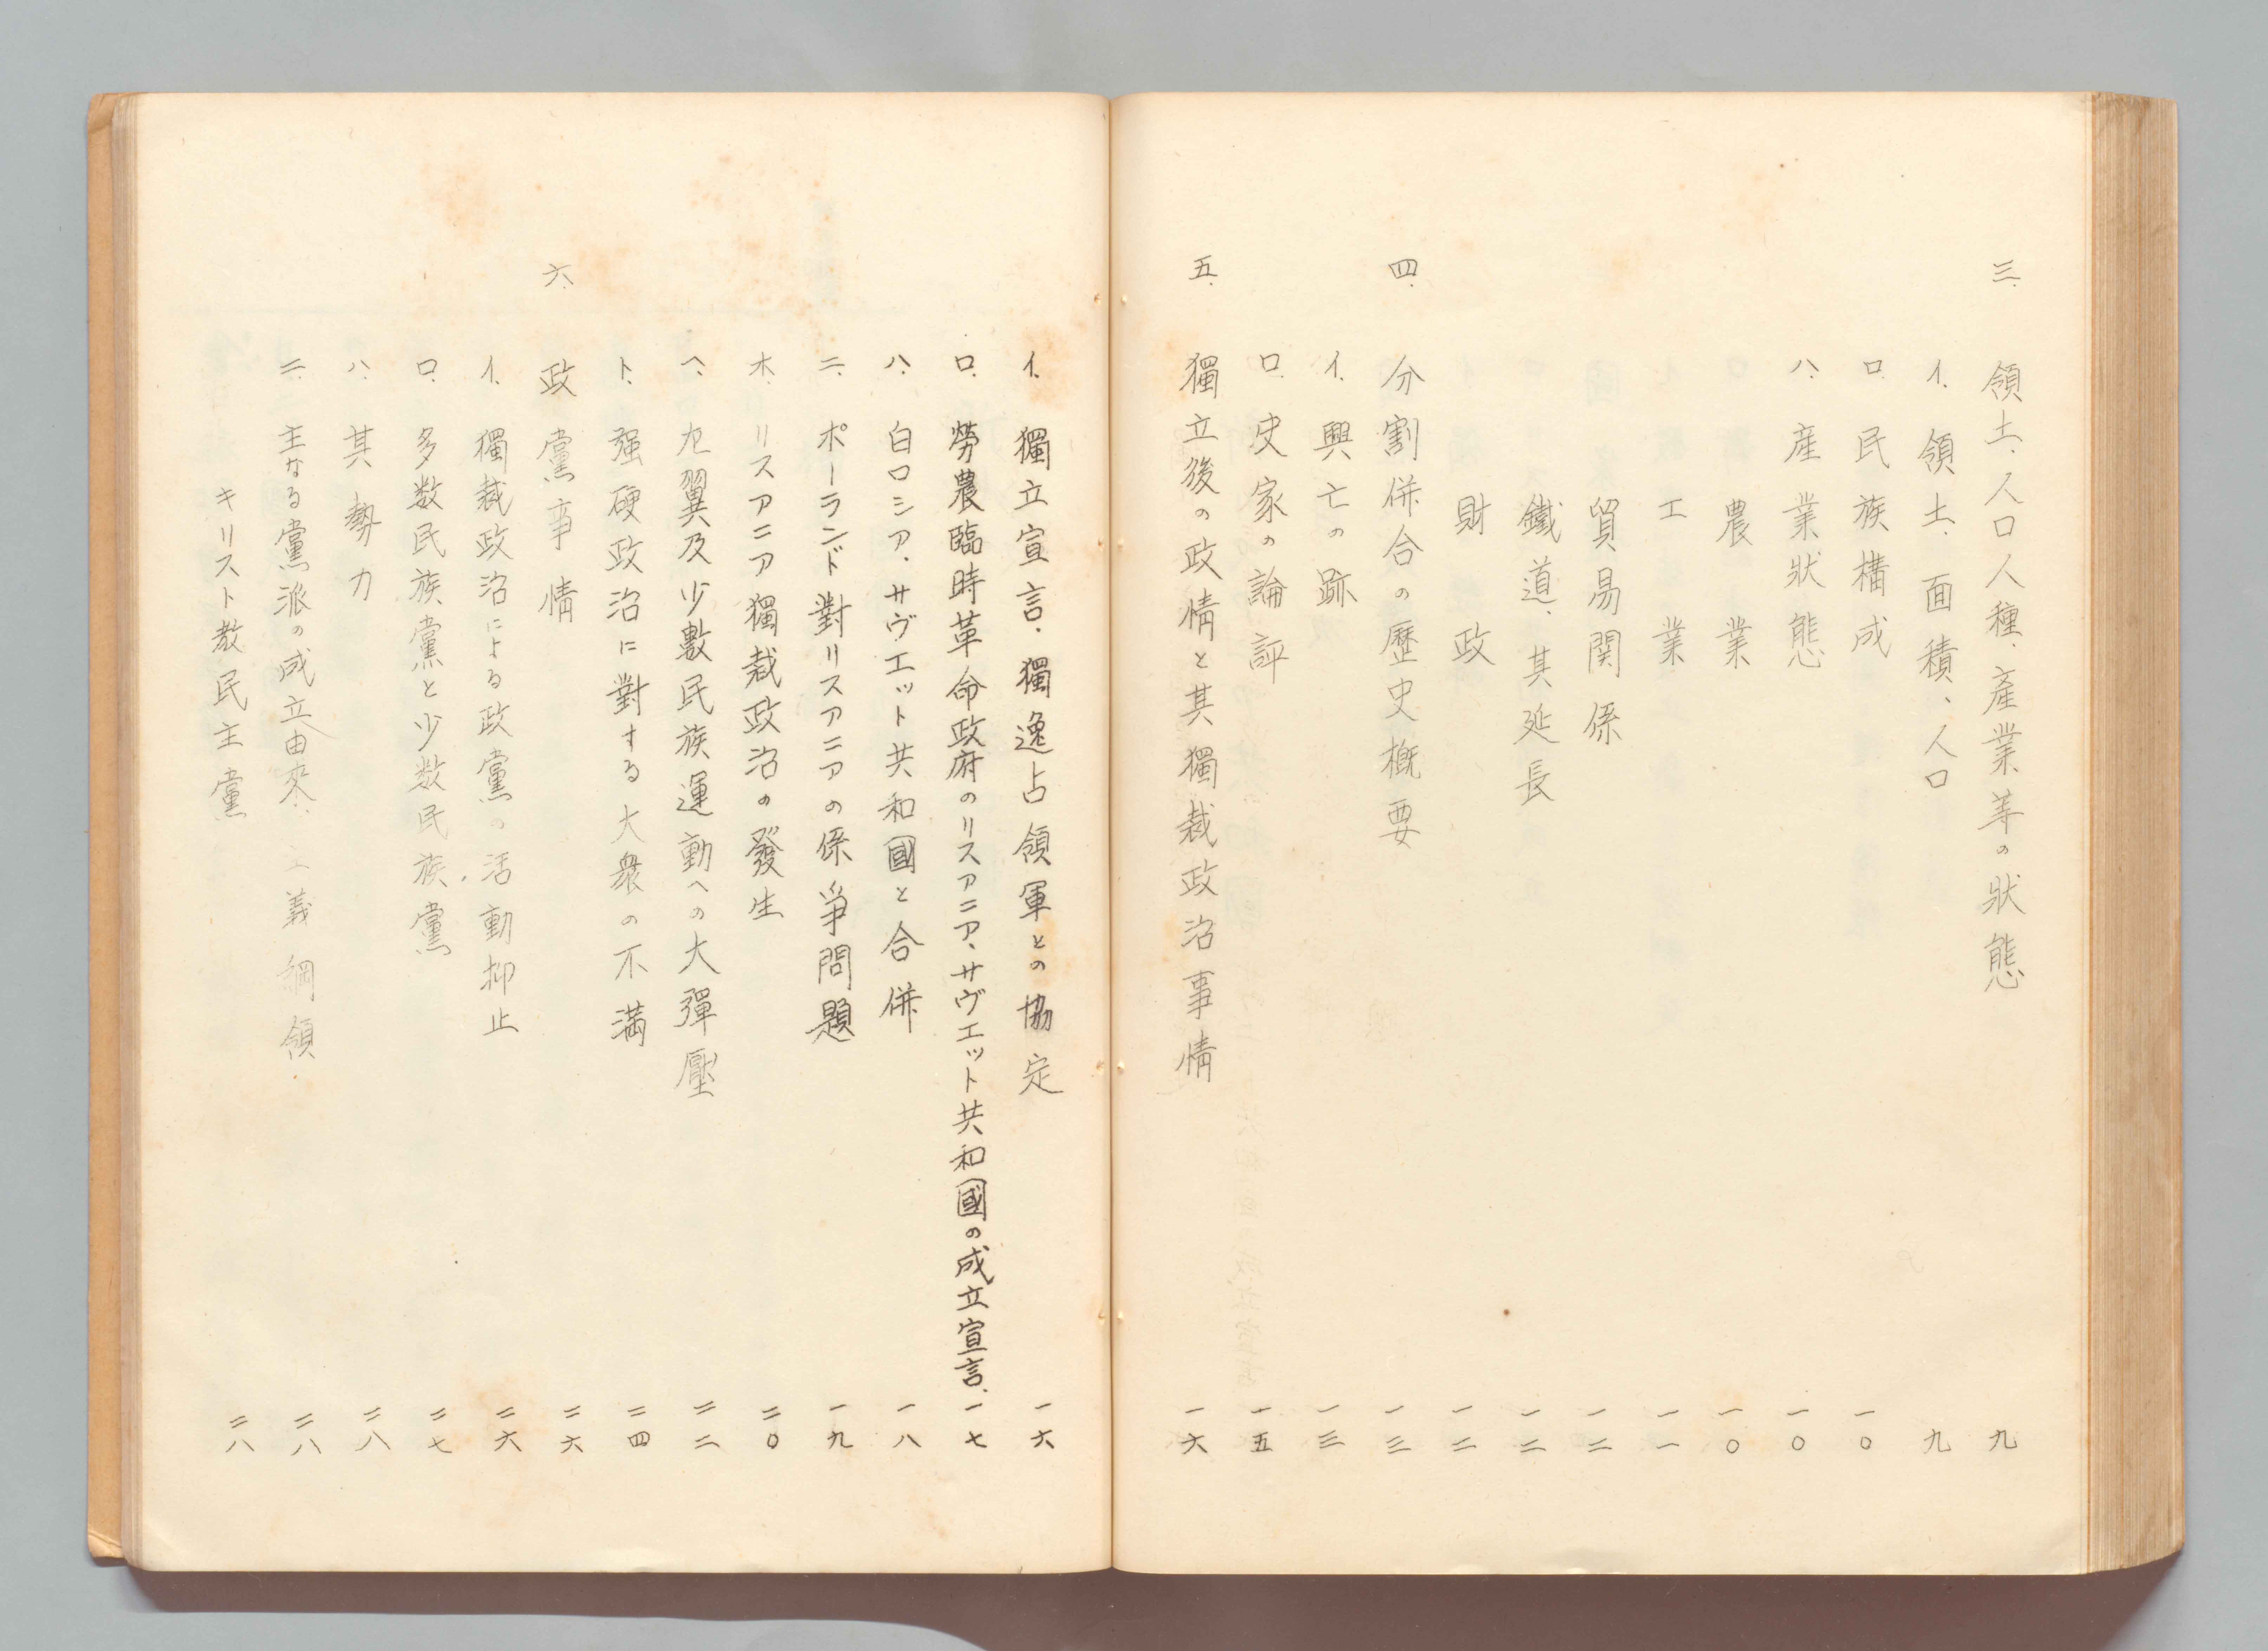 三. 領土、人口人種、產業等の狀態 九
イ. 領土、面積、人口 九
ロ. 民族構成 一〇
ハ. 産業狀態 一〇
農業 一〇
工業 一一
貿易関係 一二
鐵道、其延長 一二
財政 一二
四. 分割併合の歷史概要 一三
イ. 興亡の跡 一三
ロ. 史家の論評 一五
五. 獨立後の政情と其獨裁政治事情 一六
イ. 獨立宣言、獨逸占領軍との協定 一六
ロ. 勞農臨時革命政府のリスアニア、サヴエット共和國の成立宣言、 一七
ハ. 白ロシア、サヴエット共和國と合併 一八
ニ. ポーランド對リスアニアの係爭問題 一九
ホ. リスアニア獨裁政治の發生 二〇
ヘ. 左翼及少數民族運動への大彈壓 二二
ト. 强硬政治に對する大衆の不満 二四
六. 政黨事情 二六
イ. 獨裁政治による政黨の活動抑止 二六
ロ. 多数民族黨と少数民族黨 二七
ハ. 其勢力 二八
ニ. 主なる黨派の成立由來、主義綱領. 二八
キリスト教民主黨 二八